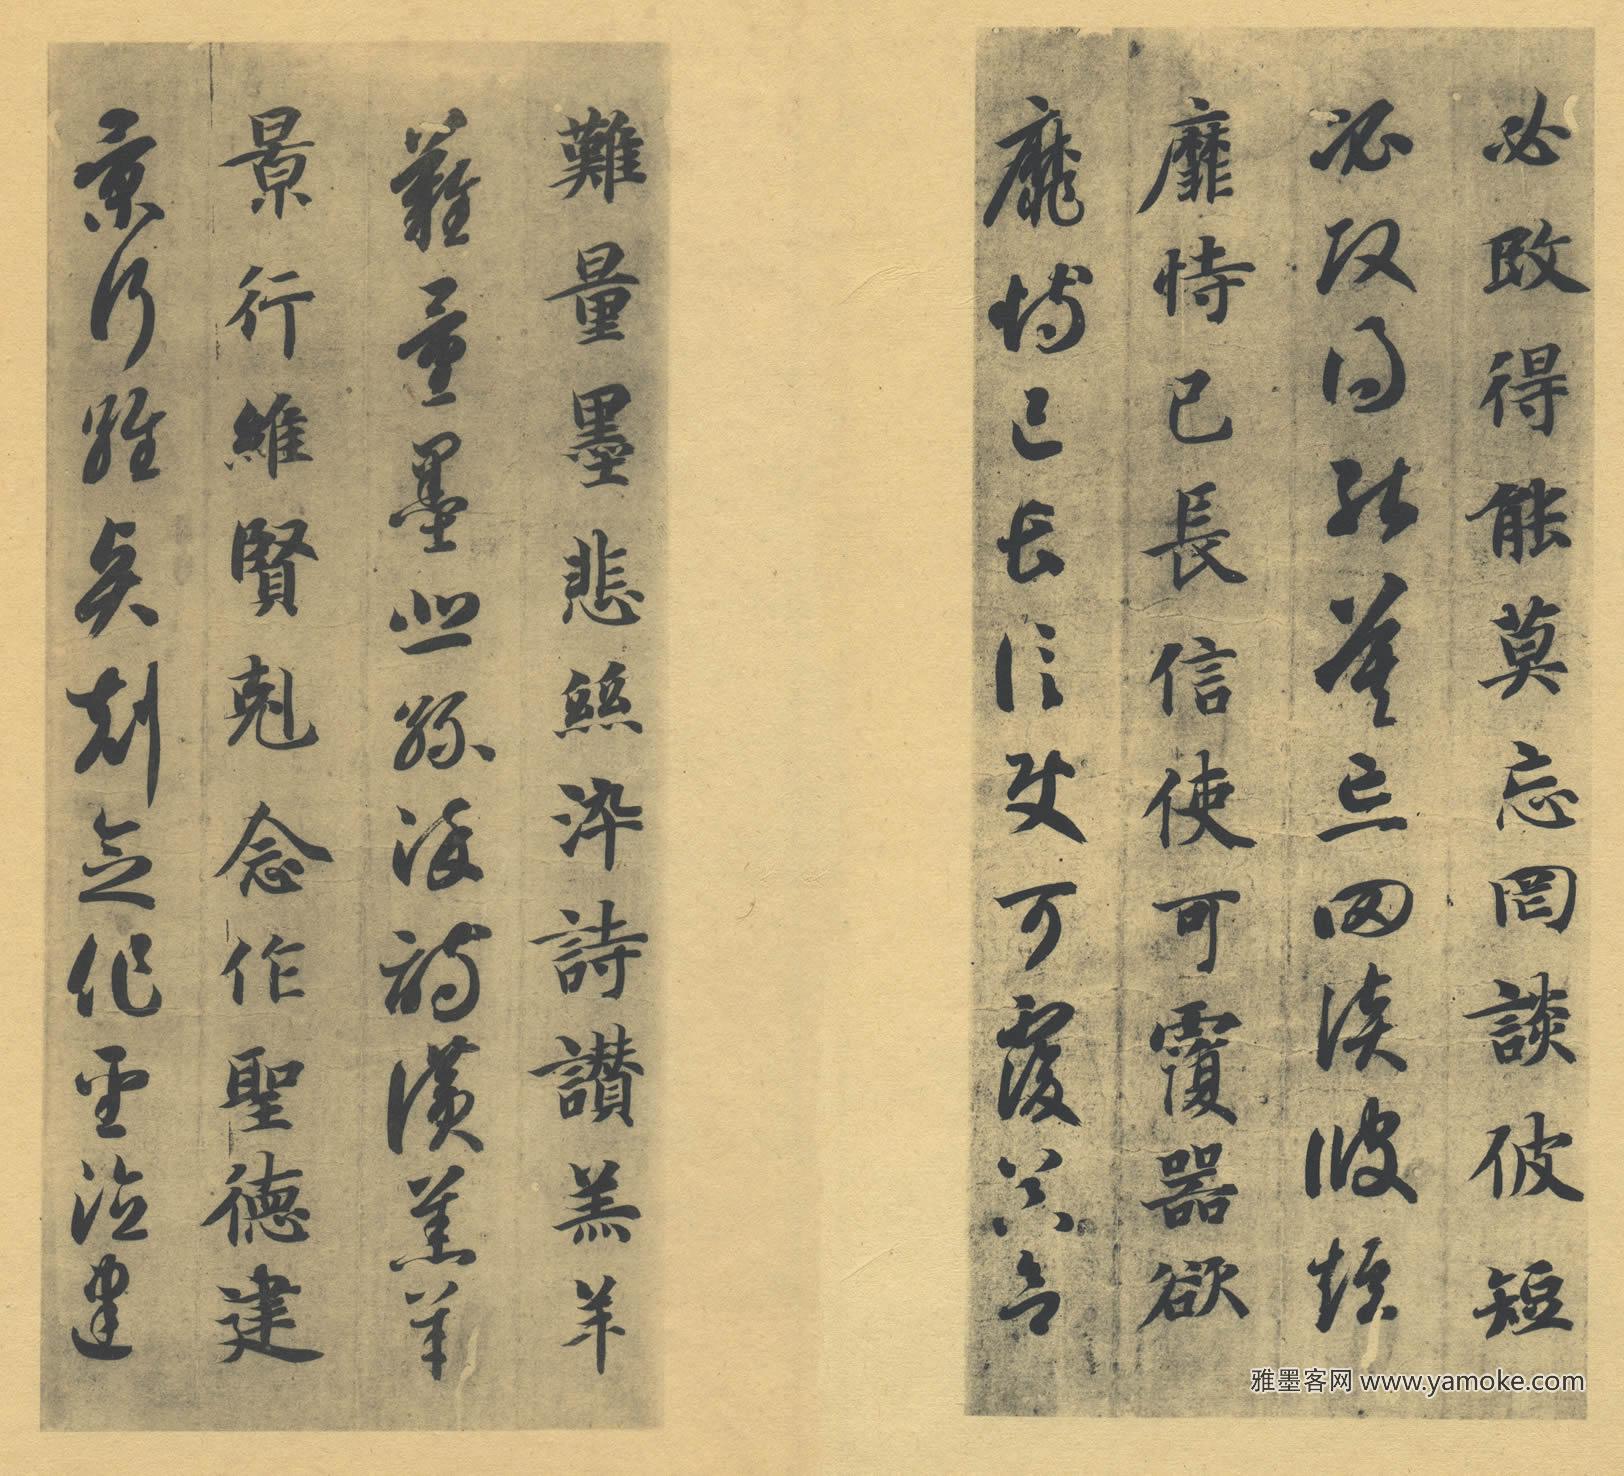 必改得能莫忘罔談彼短
必改得能莫忘罔談彼短
靡恃己長信使可覆器欲
靡恃己長信使可覆器欲
難量墨悲絲染詩讃羔羊
難量墨悲絲染詩讃羔羊
景行維賢剋念作聖德建
景行維賢剋念作聖德建
雅墨客网 www.yamoke.com